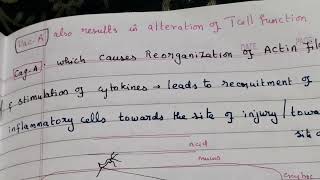 Vac-A also results in alteration of T cell function
DATE PAGE
Cag-A. which causes Reorganization of Actin Fil
f stimulation of cytokines → leads to recruitment of
inflammatory cells towards the site of injury / towar
site o
acid
mucus